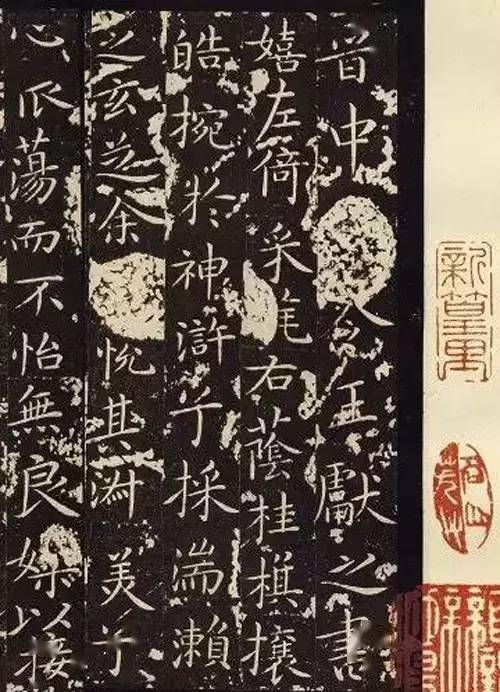 新篁里
晉中令王獻之書
嬉左倚采旄右蔭桂旗攘
皓捥於神滸兮採湍瀨
之玄芝余悅其淑美兮
心蕩而不怡無良媒以接